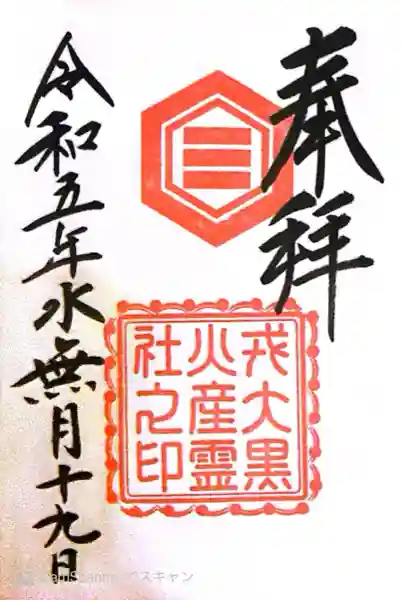 奉拝
戎大黒
火産霊
社之印
令和五年水無月十九日
スキャン